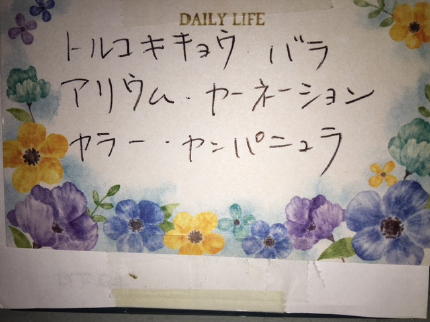 DAILY LIFE
トルコキキョウ バラ
アリウム・カーネーション
カラー・カンパニュラ